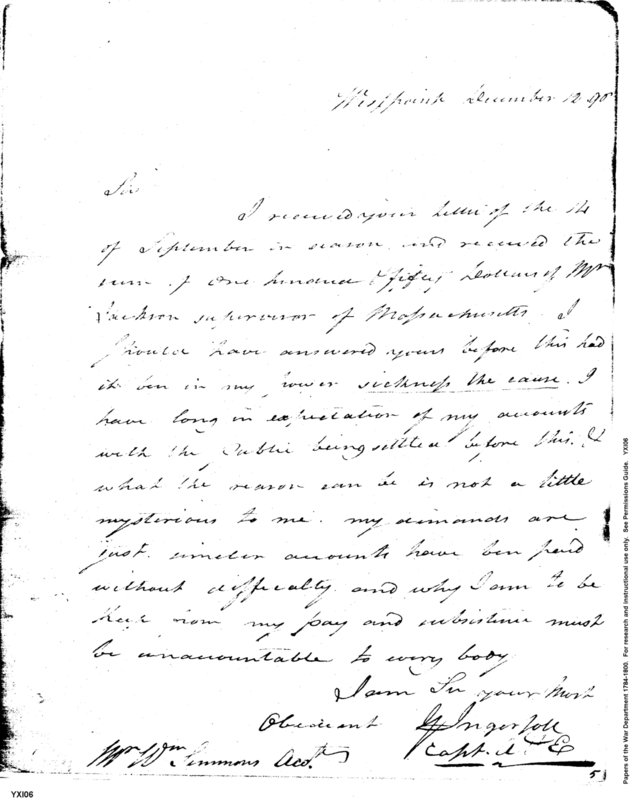 Westpoint December 12 98
Sir
I received your letter of the 14
of September in season and received the
sum of one hundred & fifty Dollars of Mr
Jackson supervisor of Massachusetts. I
should have answered yours before this had
it ben in my power sickness the cause. I
have long in expectation of my accounts
with the Public being settled before this. &
what the reason can be is not a little
mysterious to me. my demands are
just. simeler accounts have ben paid
without difficalty and why I am to be
Kept from my pay and subsistence must
be unaccountable to every body
I am Sir your most
Obedient G Ingersoll
Capt. A & E
Mr Wm Simmons Acct.
5
YXI06
Papers of the War Department 1784-1800. For research and instructional use only. See Permissions Guide. YXI06